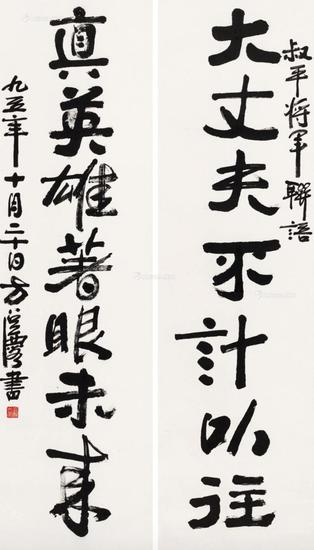 叔平将军聯語
大丈夫不計以往
真英雄著眼未来
九五年十月二十日方 書